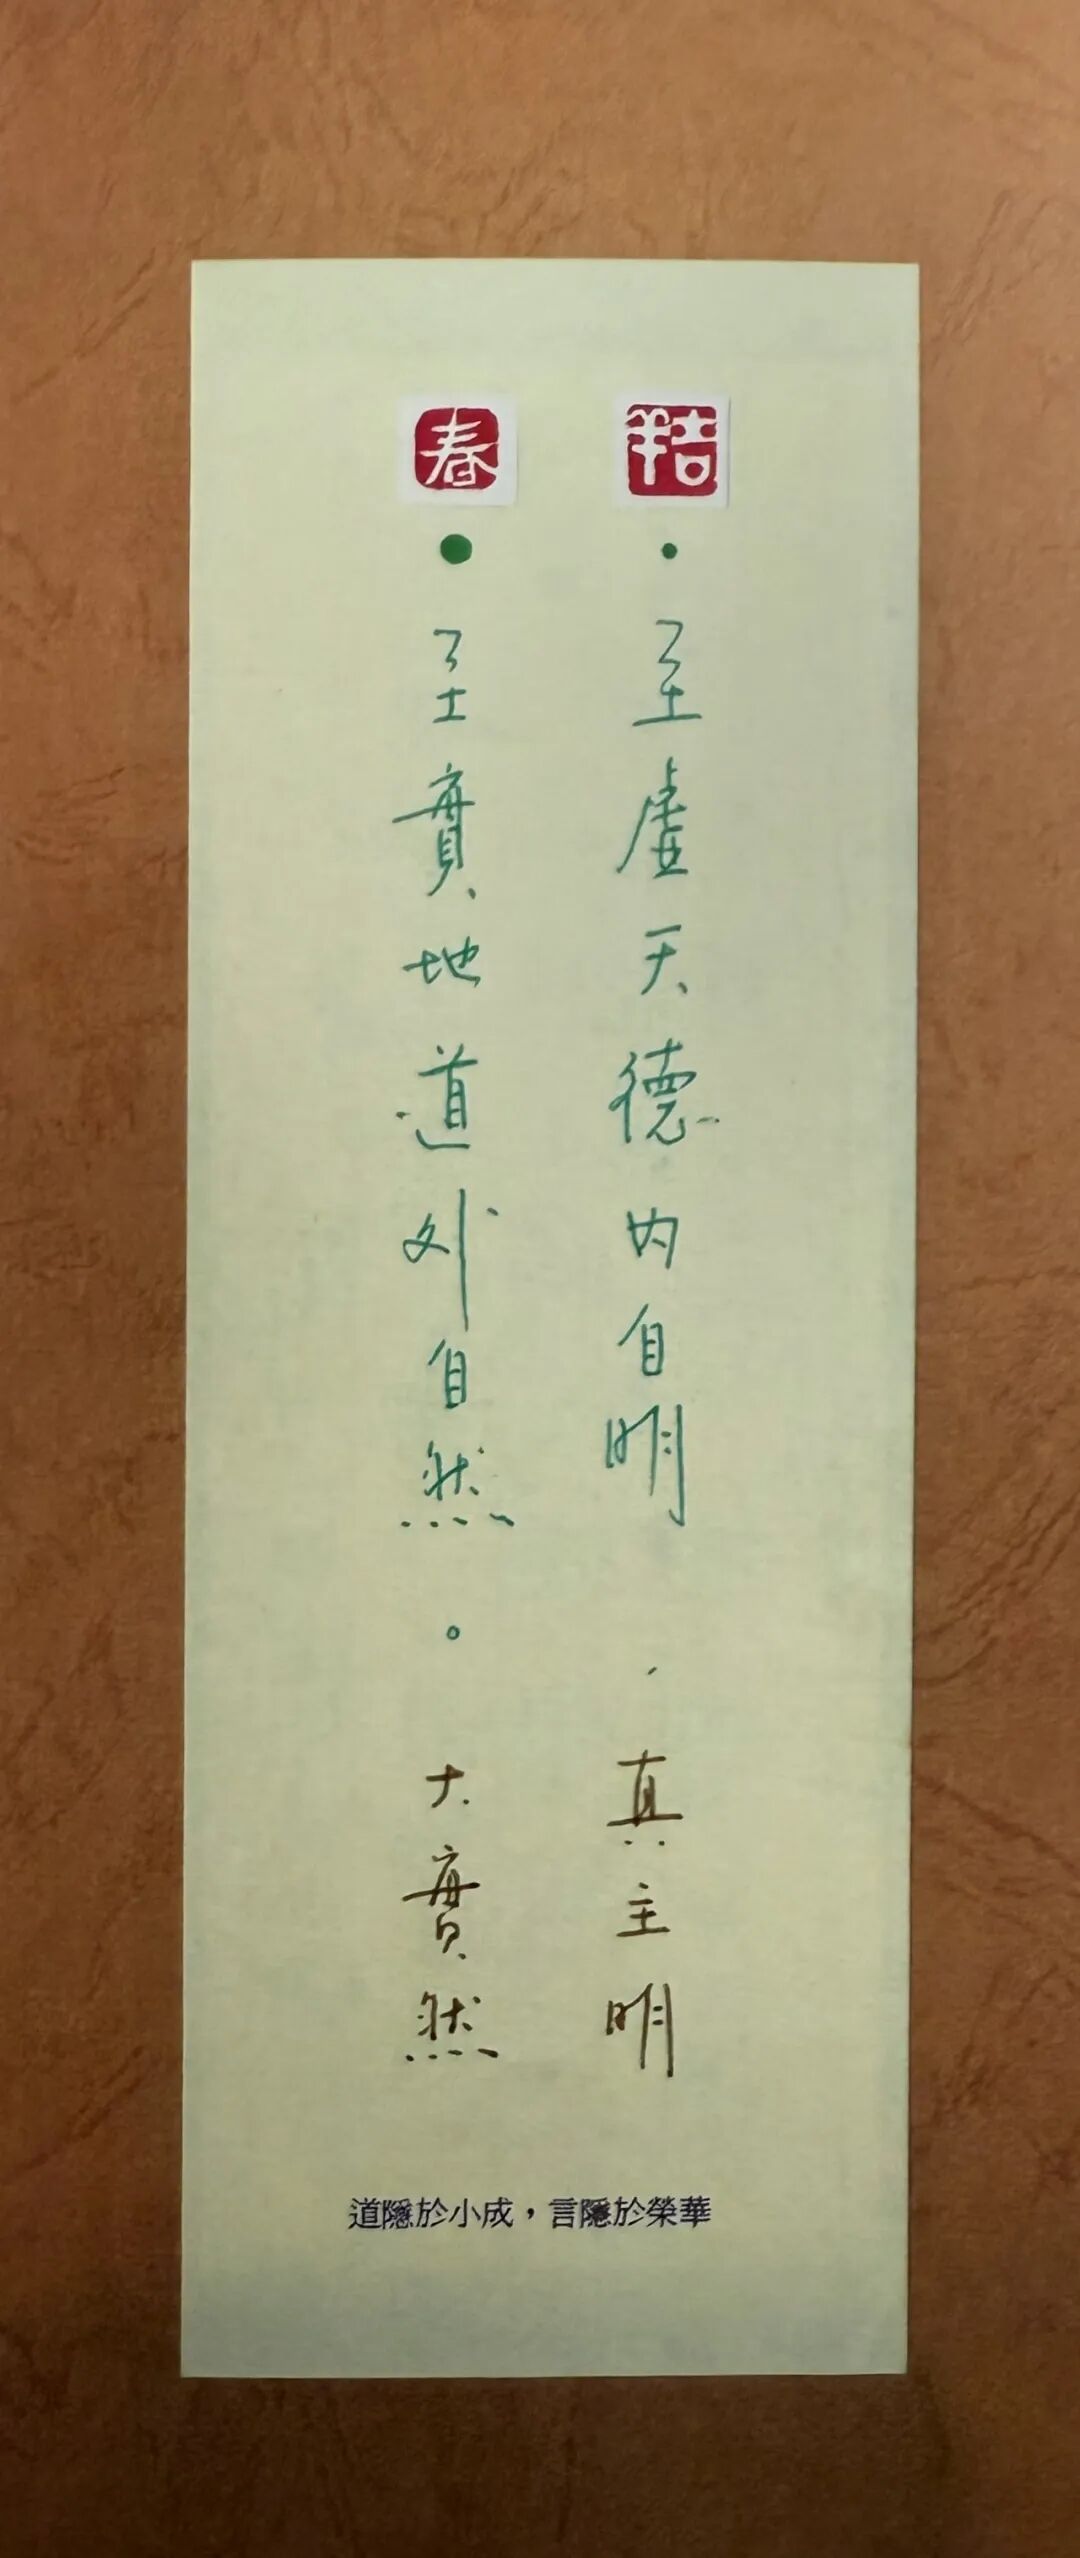 至虛天德內自明，真主明
春
至實地道外自然。大實然
道隱於小成，言隱於榮華